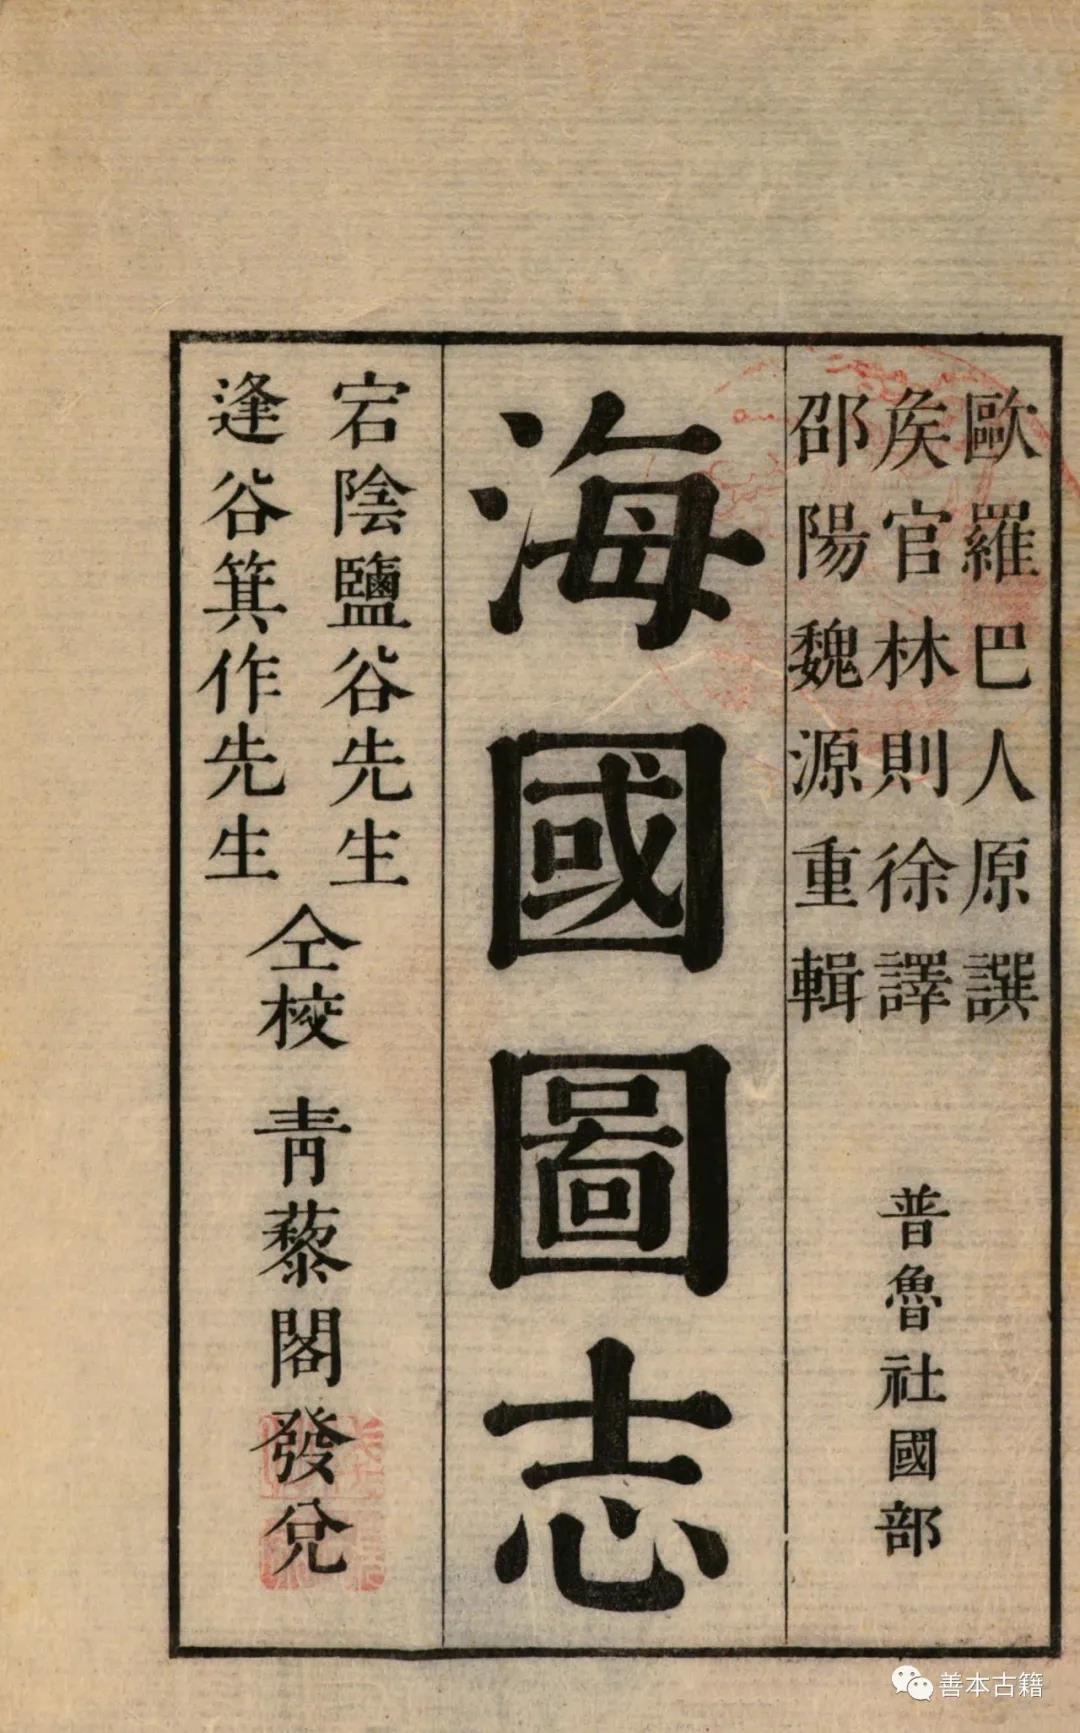 歐羅巴人原撰
矦官林則徐譯
邵陽魏源重輯
普魯社國部
海國圖志
宕陰鹽谷先生
逢谷箕作先生
仝校
青藜閣發兌
善本古籍